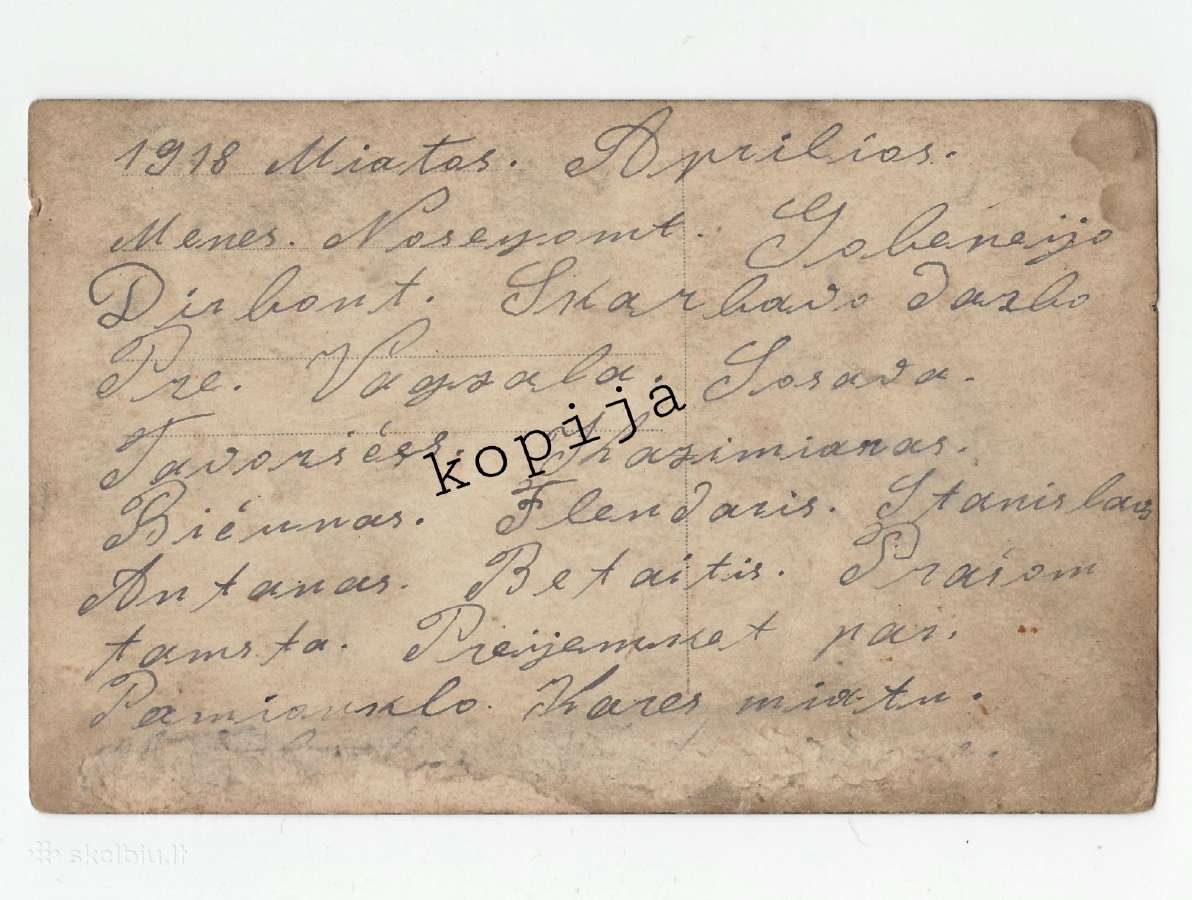 1918 Miatas. Aprilias.
Menes. Noseyomt. Gobeneijo
Dirbont. Skarbavo Darbo
Pre. Vagzala. Sosava.
Tavorsiéss. Kazimiaras.
Biéunas. Flendaris. Stanislavs
Antanas. Betaitis. Prašom
tamsta. Preijemket par.
Pamiounklo. Kares miatu.
kopija
skelbiu.lt